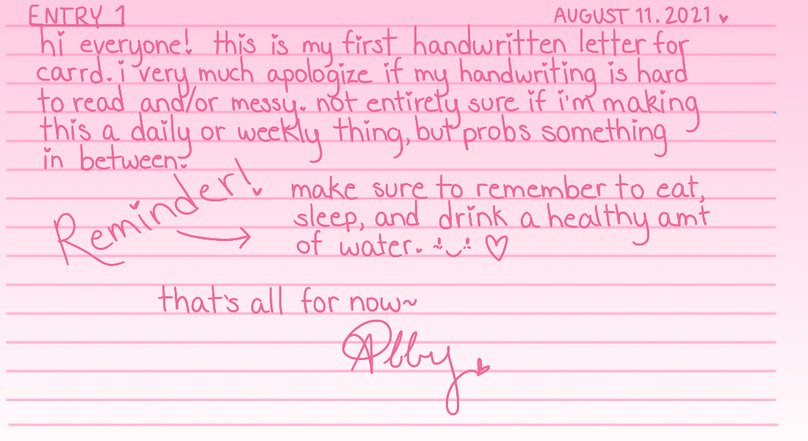 ENTRY 1
AUGUST 11.2021 ♥
hi everyone! this is my first handwritten letter for
carrd. i very much apologize if my handwriting is hard
to read and/or messy. not entirely sure if i'm making
this a daily or weekly thing, but probs something
in between.
Reminder! →
make sure to remember to eat,
sleep, and drink a healthy amt
of water. ♡
that's all for now~
Abby